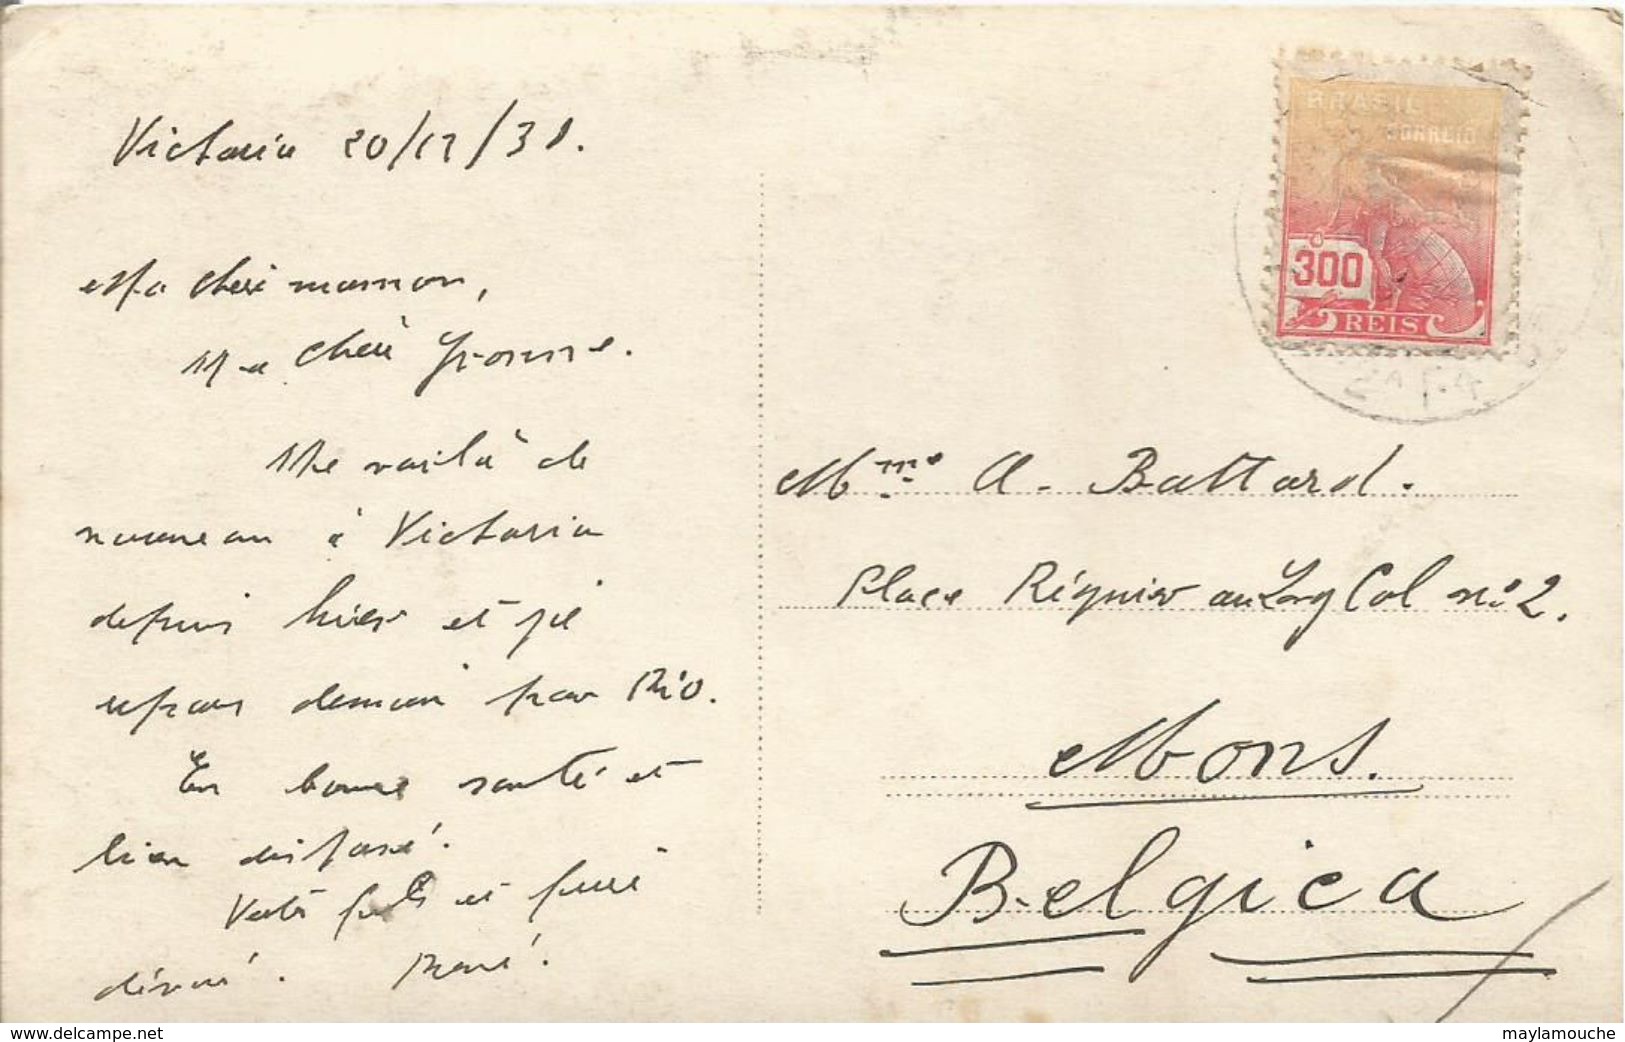 Victoria 20/12/31.
Ma chère maman,
Ma chère Yvonne.
Me voilà de
nouveau à Victoria
depuis hier et je
repars demain pour Rio.
En bonne santé et
bien disposé.
Votre fils et frère
dévoué. René.
BRASIL
CORREIO
300
REIS
Mme A. Battard.
Place Régnier au Long Col no 2.
Mons.
Belgica
www.delcampe.net
maylamouche